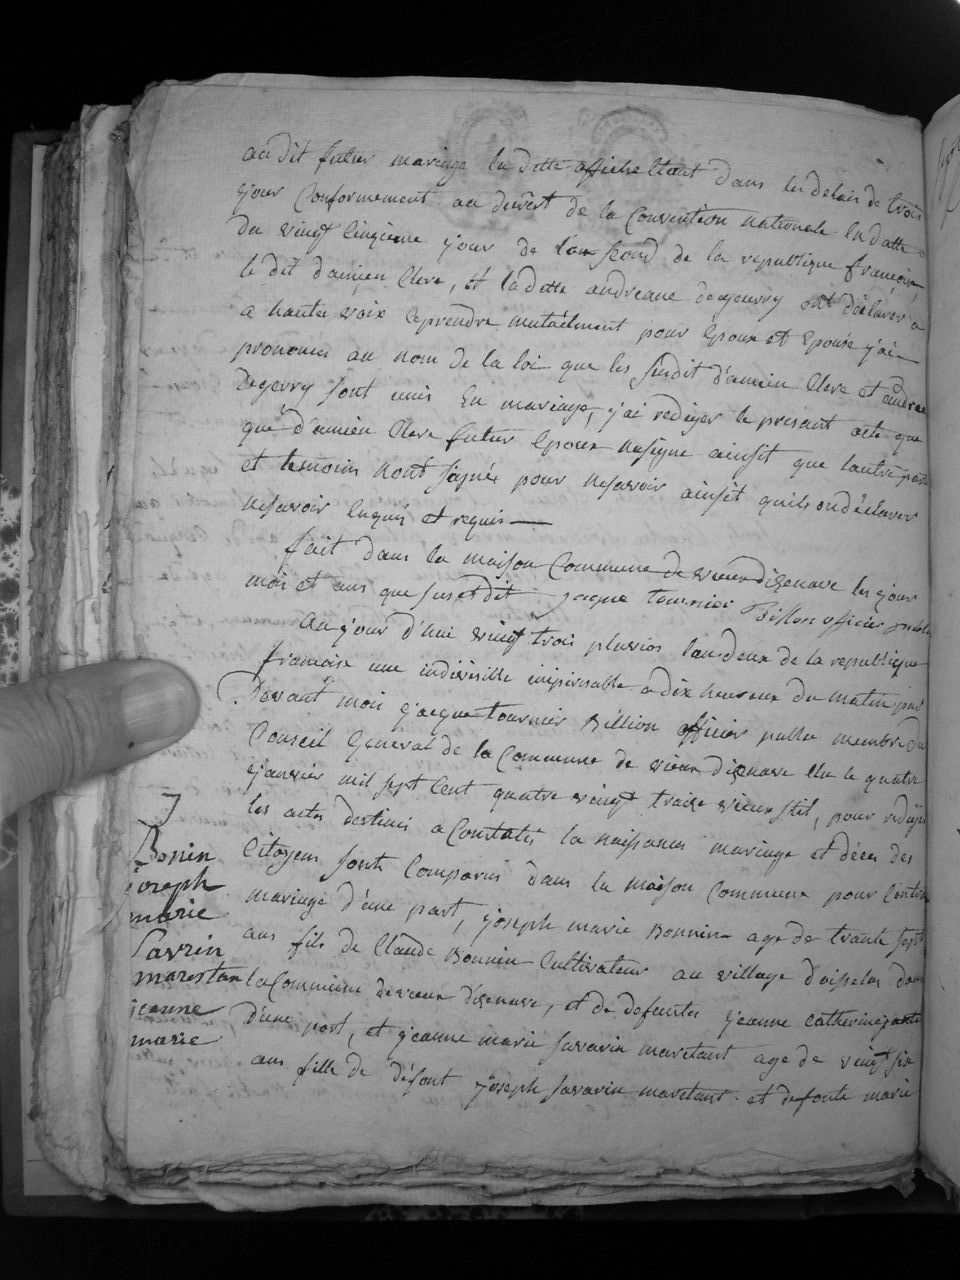 audit futur mariage la ditte affiche étant dans les delais de trois
jour Conformement au decret de la Convention nationale en datte
du vingt cinquieme jour de l'an second de la republique françoise
le dit d'amien Clere, et la ditte andreane degerry ont déclarer a
a haute voix se prendre mutuelment pour Epoux et Epouse j'ai
prononcer au nom de la loi que les susdit d'amien Clere et andreane
Degerry sont unis En mariage, j'ai rediger le present acte que
que d'amien Clere futur Epoux na signe ainsit que lautre part
et temoin nont signés pour ne savoir ainsit quils ondéclarer
ne savoir Enquis et requis
fait dans la maison Commune de vieux dizenave les jour
mois et ans que susetdit jaque tournier Billon officier public
Au jour d'hui vingt trois pluvios lan deux de la republique
françoise une indivisille imperisable a dix heures du matin par
Devant moi jacque tournier Billion officier public membre du
Conseil General de la Commune de vieux dizenave Elu le quatre
janvier mil sept Cent quatre vingt traize vieux stil, pour rediger
les actes destinés a Constater la naissances mariage et décés des
Citoyens sonts Comparus dans la maison Commune pour Contra
mariage d'une part, joseph marie Bonnin age de trante sept
ans fils de Claude Bonnin Cultivateur au village d'oisselas dans
la Commune de vieux dizenave, et de defeuste jeanne catherine
d'une part, et jeanne marie savarin maretant age de vingt six
ans fille de défont joseph savarin maretant et defonte marie
7
Bonin
joseph
marie
Savrin
marestan
jeanne
marie